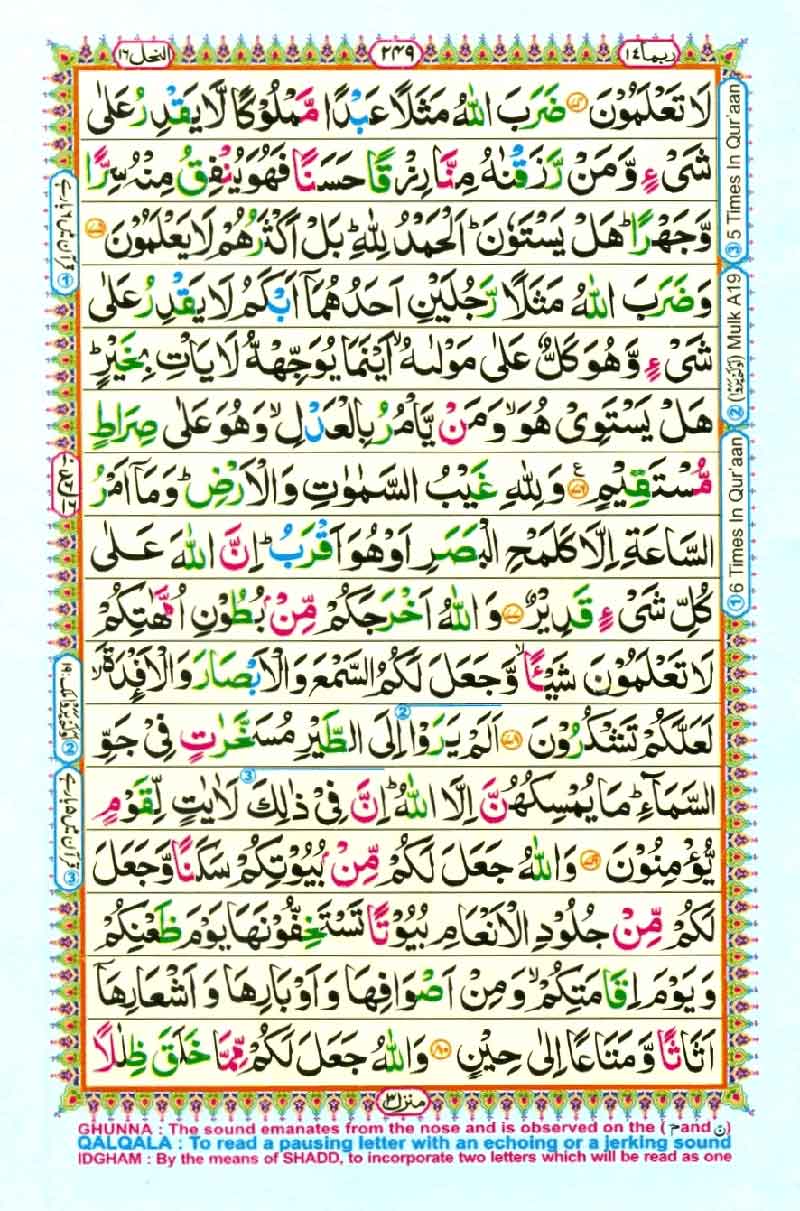 ربما ١٤
٢٤٩
النحل ١٦
لَا تَعْلَمُوْنَ ۝ ضَرَبَ اللّٰهُ مَثَلًا عَبْدًا مَّمْلُوْكًا لَّا يَقْدِرُ عَلٰى
شَیْءٍ وَّمَنْ رَّزَقْنٰهُ مِنَّا رِزْقًا حَسَنًا فَهُوَ يُنْفِقُ مِنْهُ سِرًّا
وَّجَهْرًا ؕ هَلْ يَسْتَوٗنَ ؕ اَلْحَمْدُ لِلّٰهِ ؕ بَلْ اَكْثَرُهُمْ لَا يَعْلَمُوْنَ ۝
وَضَرَبَ اللّٰهُ مَثَلًا رَّجُلَيْنِ اَحَدُهُمَاۤ اَبْكَمُ لَا يَقْدِرُ عَلٰى
شَیْءٍ وَّهُوَ كَلٌّ عَلٰى مَوْلٰىهُ ۙ اَيْنَمَا يُوَجِّهْهُّ لَا يَاْتِ بِخَيْرٍ ؕ
هَلْ يَسْتَوِىْ هُوَ ۙ وَمَنْ يَّاْمُرُ بِالْعَدْلِ ۙ وَهُوَ عَلٰى صِرَاطٍ
مُّسْتَقِيْمٍ ۝ ع وَلِلّٰهِ غَيْبُ السَّمٰوٰتِ وَالْاَرْضِ ؕ وَمَاۤ اَمْرُ
السَّاعَةِ اِلَّا كَلَمْحِ الْبَصَرِ اَوْ هُوَ اَقْرَبُ ؕ اِنَّ اللّٰهَ عَلٰى
كُلِّ شَیْءٍ قَدِيْرٌ ۝ وَاللّٰهُ اَخْرَجَكُمْ مِّنْۢ بُطُوْنِ اُمَّهٰتِكُمْ
لَا تَعْلَمُوْنَ شَيْـًٔا ۙ وَّجَعَلَ لَكُمُ السَّمْعَ وَالْاَبْصَارَ وَالْاَفْـِٕدَةَ ۙ
لَعَلَّكُمْ تَشْكُرُوْنَ ۝ اَلَمْ يَرَوْا اِلَى الطَّيْرِ مُسَخَّرٰتٍ فِیْ جَوِّ
السَّمَآءِ ؕ مَا يُمْسِكُهُنَّ اِلَّا اللّٰهُ ؕ اِنَّ فِیْ ذٰلِكَ لَاٰيٰتٍ لِّقَوْمٍ
يُّؤْمِنُوْنَ ۝ وَاللّٰهُ جَعَلَ لَكُمْ مِّنْۢ بُيُوْتِكُمْ سَكَنًا وَّجَعَلَ
لَكُمْ مِّنْ جُلُوْدِ الْاَنْعَامِ بُيُوْتًا تَسْتَخِفُّوْنَهَا يَوْمَ ظَعْنِكُمْ
وَيَوْمَ اِقَامَتِكُمْ ۙ وَمِنْ اَصْوَافِهَا وَاَوْبَارِهَا وَاَشْعَارِهَاۤ
اَثَاثًا وَّمَتَاعًا اِلٰى حِيْنٍ ۝ وَاللّٰهُ جَعَلَ لَكُمْ مِّمَّا خَلَقَ ظِلٰلًا
②
③
① 6 Times In Qur'aan
② (اَوَلَمْ يَرَوْا) Mulk A19
③ 5 Times In Qur'aan
① قرآن میں ۶ بارہے
③ قرآن میں ۵ بارہے
منزل ۳
GHUNNA : The sound emanates from the nose and is observed on the (م and ن)
QALQALA : To read a pausing letter with an echoing or a jerking sound
IDGHAM : By the means of SHADD, to incorporate two letters which will be read as one